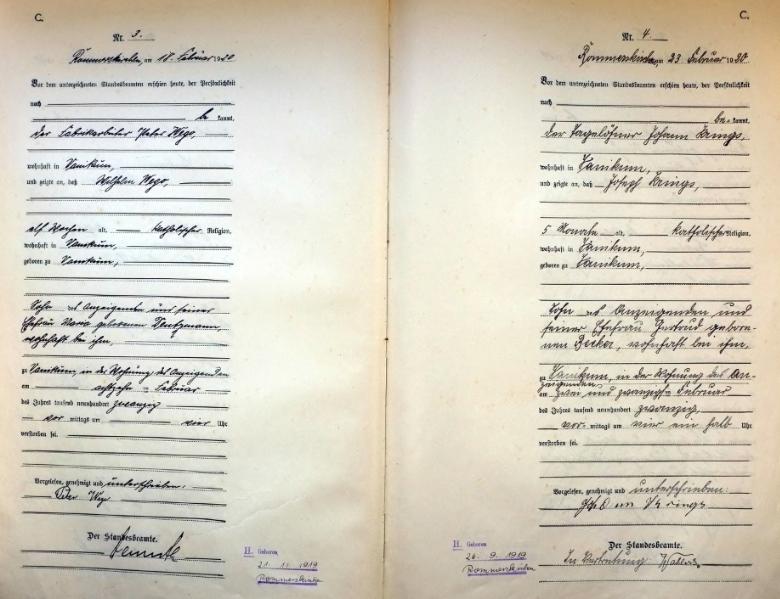 C.
Nr. 3.
Rommerskirchen, am 18. Februar 1920
Vor dem unterzeichneten Standesbeamten erschien heute, der Persönlichkeit
nach
be kannt,
der Fabrikarbeiter Peter
wohnhaft in Vanikum,
und zeigte an, daß Wilhelm
elf Wochen alt, katholischer Religion,
wohnhaft in Vanikum,
geboren zu Vanikum,
Sohn des Anzeigenden und seiner
Ehefrau Maria geborenen
wohnhaft bei ihm,
zu Vanikum, in der Wohnung des Anzeigenden
am achtzehn Februar
des Jahres tausend neunhundert zwanzig
vor mittags um vier Uhr
verstorben sei.
Vorgelesen, genehmigt und unterschrieben.
Peter
Der Standesbeamte.
H. Geboren
21. 11. 1919
Rommerskirchen
C.
Nr. 4.
Rommerskirchen, am 23 Februar 1920
Vor dem unterzeichneten Standesbeamten erschien heute, der Persönlichkeit
nach
be kannt,
der Tagelöhner Johann Krings,
wohnhaft in Vanikum,
und zeigte an, daß Joseph Krings,
5 Monate alt, katholischer Religion,
wohnhaft in Vanikum,
geboren zu Vanikum,
Sohn des Anzeigenden und
seiner Ehefrau Gertrud gebore-
nen wohnhaft bei ihm,
zu Vanikum, in der Wohnung des An-
zeigenden
am zwei und zwanzigsten Februar
des Jahres tausend neunhundert zwanzig,
vor mittags um vier ein halb Uhr
verstorben sei.
Vorgelesen, genehmigt und unterschrieben.
Krings
Der Standesbeamte.
In Vertretung
H. Geboren
26. 9. 1919
Rommerskirchen